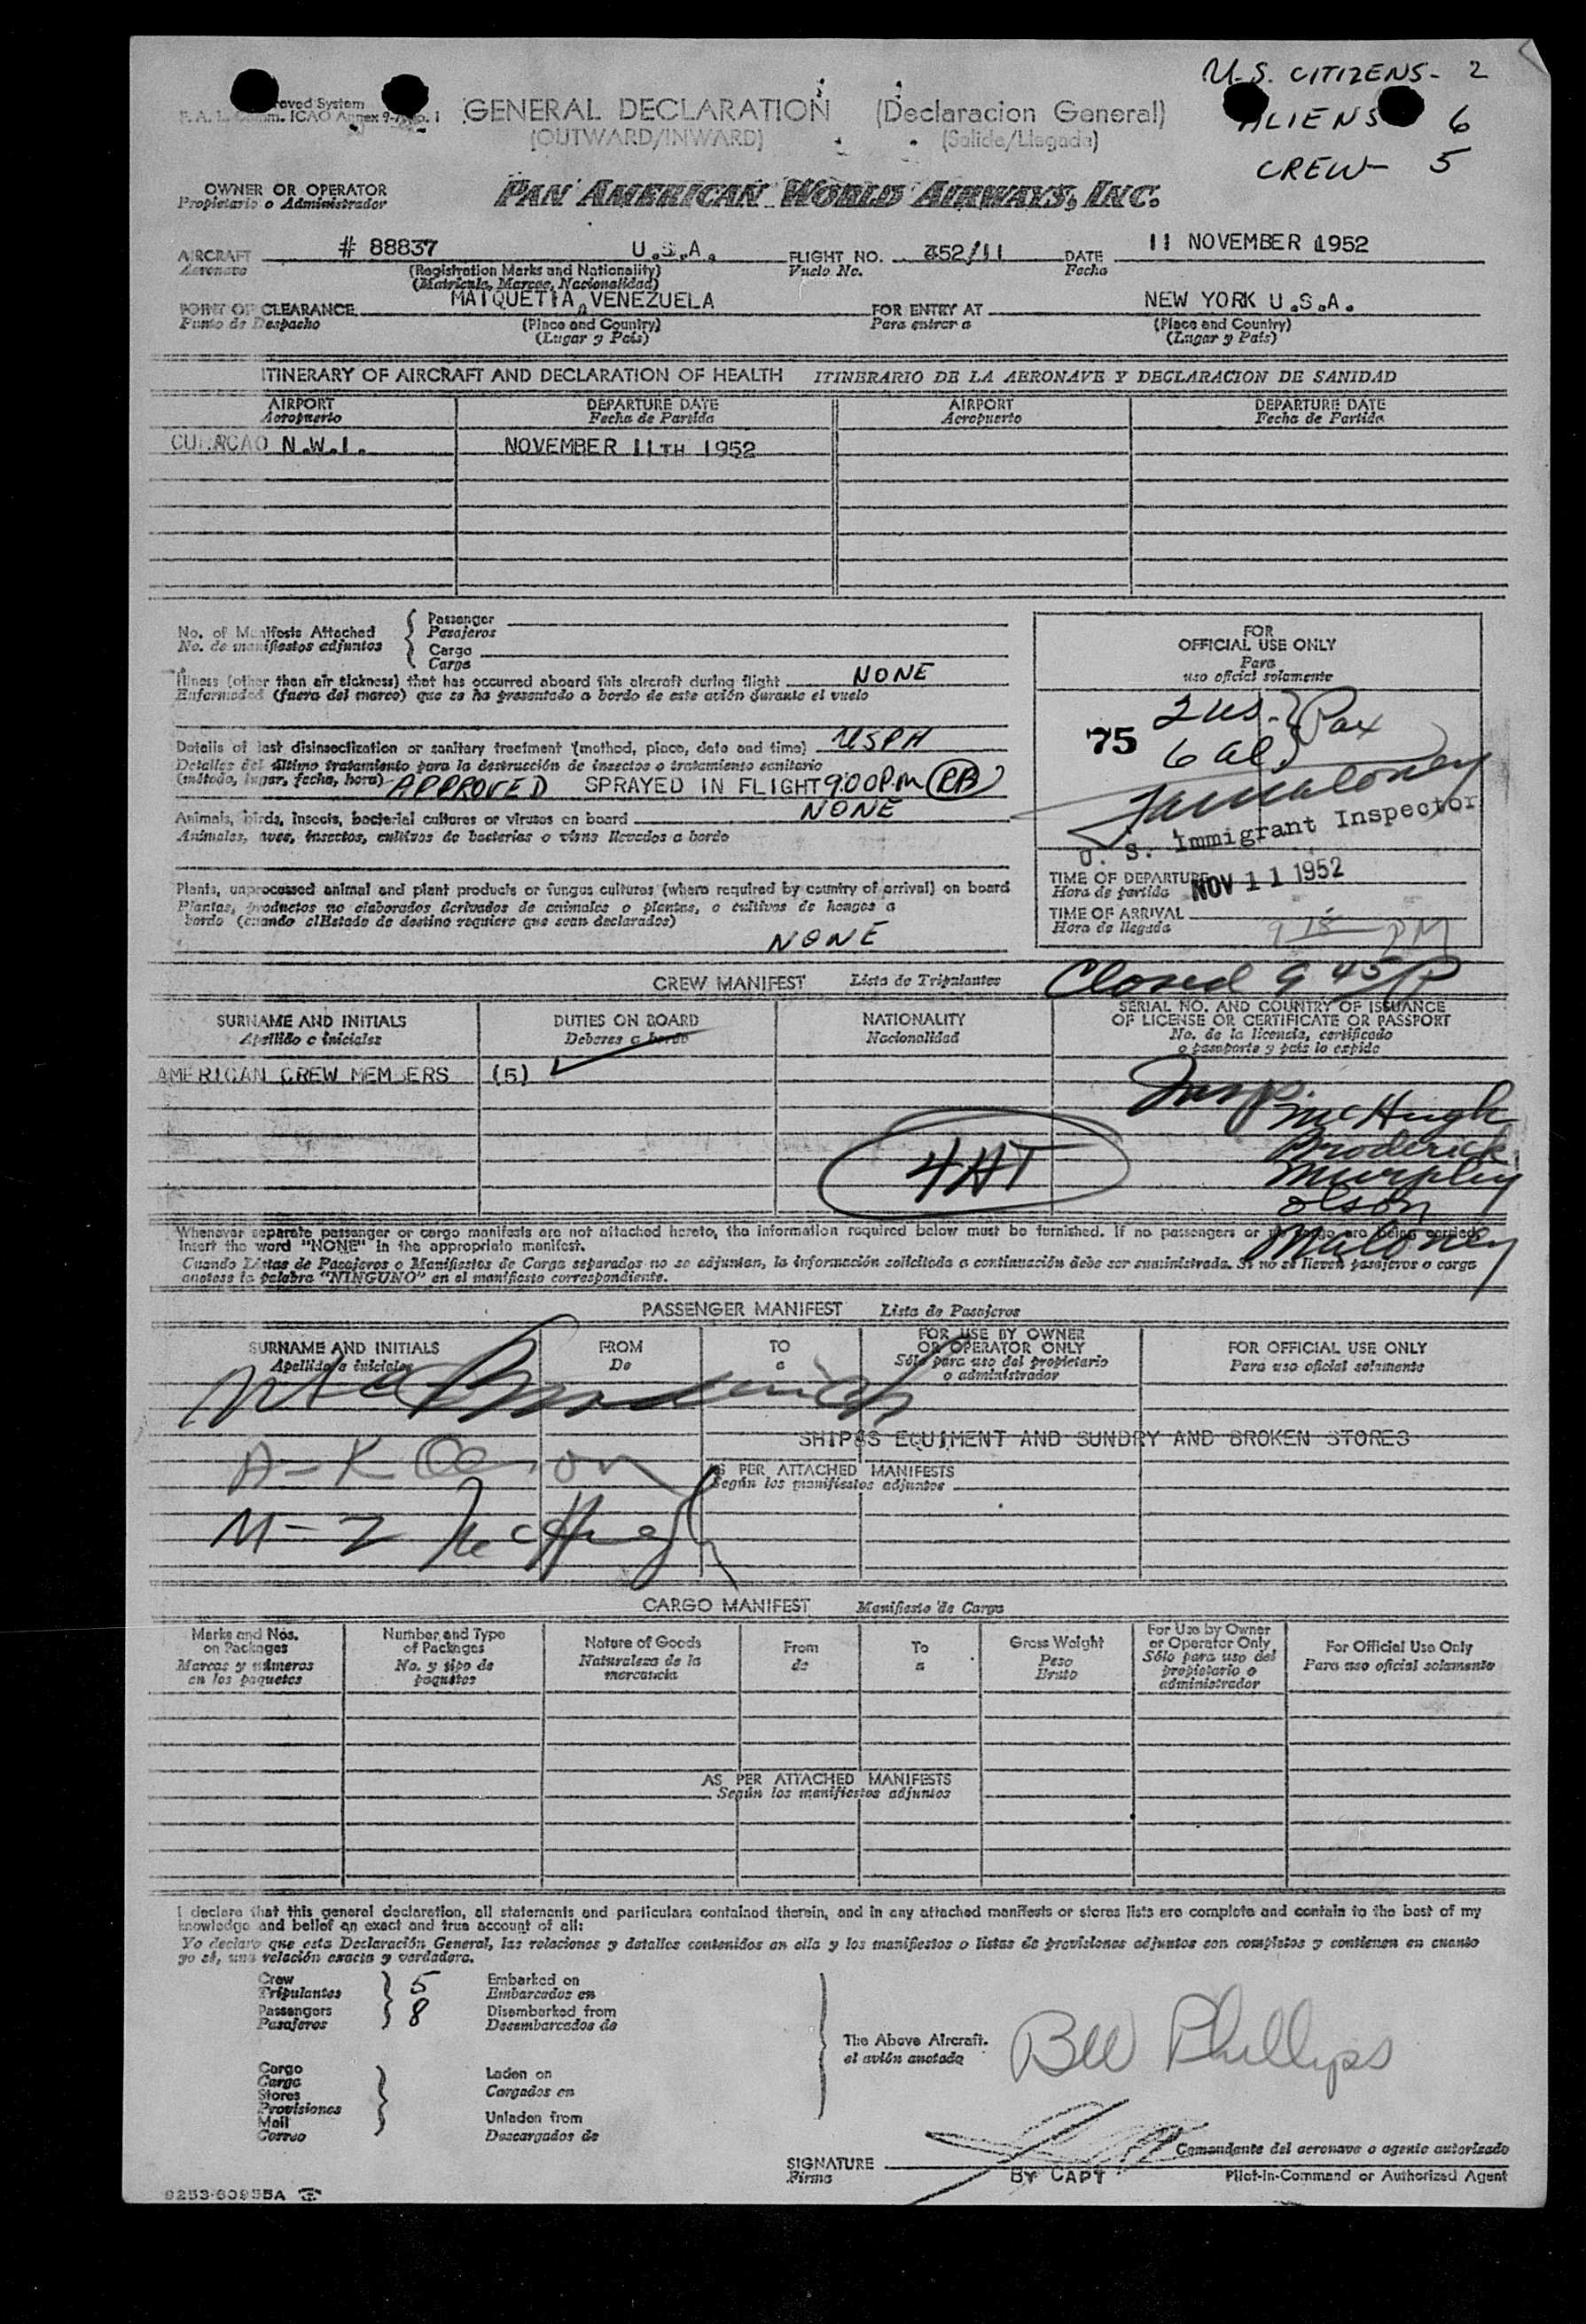 U.S. CITIZENS - 2
ALIENS 6
CREW - 5
GENERAL DECLARATION (Declaracion General)
(OUTWARD/INWARD) (Salida/Llegada)
OWNER OR OPERATOR
Propietario o Administrador
PAN AMERICAN WORLD AIRWAYS, INC.
AIRCRAFT # 88837 U.S.A. FLIGHT NO. 452/11 DATE 11 NOVEMBER 1952
Aeronave (Registration Marks and Nationality) Vuelo No. Fecha
(Matricula, Marcas, Nacionalidad)
POINT OF CLEARANCE MAIQUETIA, VENEZUELA FOR ENTRY AT NEW YORK U.S.A.
Punto de Despacho (Place and Country) Para entrar a (Place and Country)
(Lugar y País) (Lugar y País)
ITINERARY OF AIRCRAFT AND DECLARATION OF HEALTH ITINERARIO DE LA AERONAVE Y DECLARACION DE SANIDAD
AIRPORT DEPARTURE DATE AIRPORT DEPARTURE DATE
Aeropuerto Fecha de Partida Aeropuerto Fecha de Partida
CURACAO N.W.I. NOVEMBER 11TH 1952
No. of Manifests Attached
No. de manifiestos adjuntos
Passenger
Pasajeros
Cargo
Carga
Illness (other than air sickness) that has occurred aboard this aircraft during flight NONE
Enfermedad (fuera del mareo) que se ha presentado a bordo de este avión durante el vuelo
Details of last disinsectization or sanitary treatment (method, place, date and time) USPH
Detalles del último tratamiento para la destrucción de insectos o tratamiento sanitario
(método, lugar, fecha, hora) APPROVED SPRAYED IN FLIGHT 9:00 P.M. RB
Animals, birds, insects, bacterial cultures or viruses on board NONE
Animales, aves, insectos, cultivos de bacterias o virus llevados a bordo
Plants, unprocessed animal and plant products or fungus cultures (where required by country of arrival) on board
Plantas, productos no elaborados derivados de animales o plantas, o cultivos de hongos a
bordo (cuando elEstado de destino requiere que sean declarados)
NONE
FOR
OFFICIAL USE ONLY
Para
uso oficial solamente
75 2 US. Pax
6 al.
U. S. Immigrant Inspector
TIME OF DEPARTURE NOV 11 1952
Hora de partida
TIME OF ARRIVAL 9 18 PM
Hora de llegada
Closed 9 45 P
CREW MANIFEST Lista de Tripulantes
SURNAME AND INITIALS DUTIES ON BOARD NATIONALITY SERIAL NO. AND COUNTRY OF ISSUANCE
OF LICENSE OR CERTIFICATE OR PASSPORT
Apellido e iniciales Deberes a bordo Nacionalidad No. de la licencia, certificado
o pasaporte y país lo expide
AMERICAN CREW MEMBERS (5)
Insp. McHugh
Broderick
Murphy
Olson
Maloney
4AT
Whenever separate passenger or cargo manifests are not attached hereto, the information required below must be furnished. If no passengers or no cargo are being carried,
insert the word "NONE" in the appropriate manifest.
Cuando Listas de Pasajeros o Manifiestos de Carga separados no se adjuntan, la información solicitada a continuación debe ser suministrada. Si no se lleven pasajeros o carga
anotese la palabra "NINGUNO" en el manifiesto correspondiente.
PASSENGER MANIFEST Lista de Pasajeros
SURNAME AND INITIALS FROM TO FOR USE BY OWNER
OR OPERATOR ONLY FOR OFFICIAL USE ONLY
Apellido e iniciales De a Sólo para uso del propietario
o administrador Para uso oficial solamente
SHIP8S EQUIMENT AND SUNDRY AND BROKEN STORES
AS PER ATTACHED MANIFESTS
Según los manifiestos adjuntos
A-K Olson
M-Z McHugh
CARGO MANIFEST Manifiesto de Carga
Marks and Nos.
on Packages
Marcas y números
en los paquetes
Number and Type
of Packages
No. y tipo de
paquetes
Nature of Goods
Naturaleza de la
mercancía
From
de
To
a
Gross Weight
Peso
Bruto
For Use by Owner
or Operator Only
Sólo para uso del
propietario o
administrador
For Official Use Only
Para uso oficial solamente
AS PER ATTACHED MANIFESTS
Según los manifiestos adjuntos
I declare that this general declaration, all statements and particulars contained therein, and in any attached manifests or stores lists are complete and contain to the best of my
knowledge and belief an exact and true account of all:
Yo declaro que esta Declaración General, las relaciones y detalles contenidos en ella y los manifiestos o listas de provisiones adjuntos son completos y contienen en cuanto
yo sé, una relación exacta y verdadera.
Crew 5 Embarked on
Tripulantes Embarcados en
Passengers 8 Disembarked from
Pasajeros Desembarcados de
Cargo
Carga
Stores
Provisiones
Mail
Correo
Laden on
Cargados en
Unladen from
Descargados de
The Above Aircraft.
el avión anotado
Bill Phillips
SIGNATURE
Firma
BY CAPT
Comandante del aeronave o agente autorizado
Pilot-in-Command or Authorized Agent